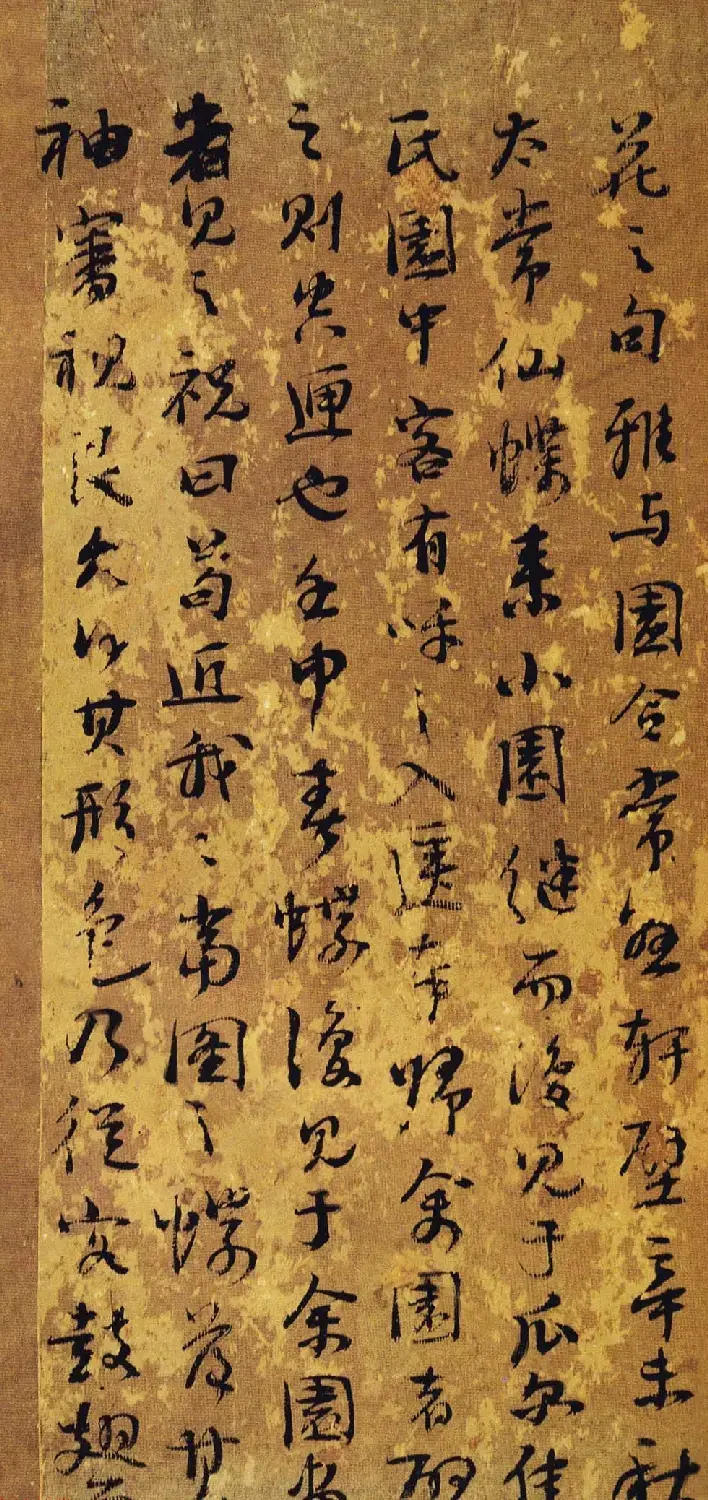 花之句雅与園合常懸軒壁辛未秋
太常仙蝶來小園継而復見于瓜尔佳
氏園中客有呼之入匣奉歸余園者
之則空匣也壬申春蝶復見于余園
者見之祝曰苟近我我當圖之蝶落其
袖審視良久得其形色乃從容鼓翅